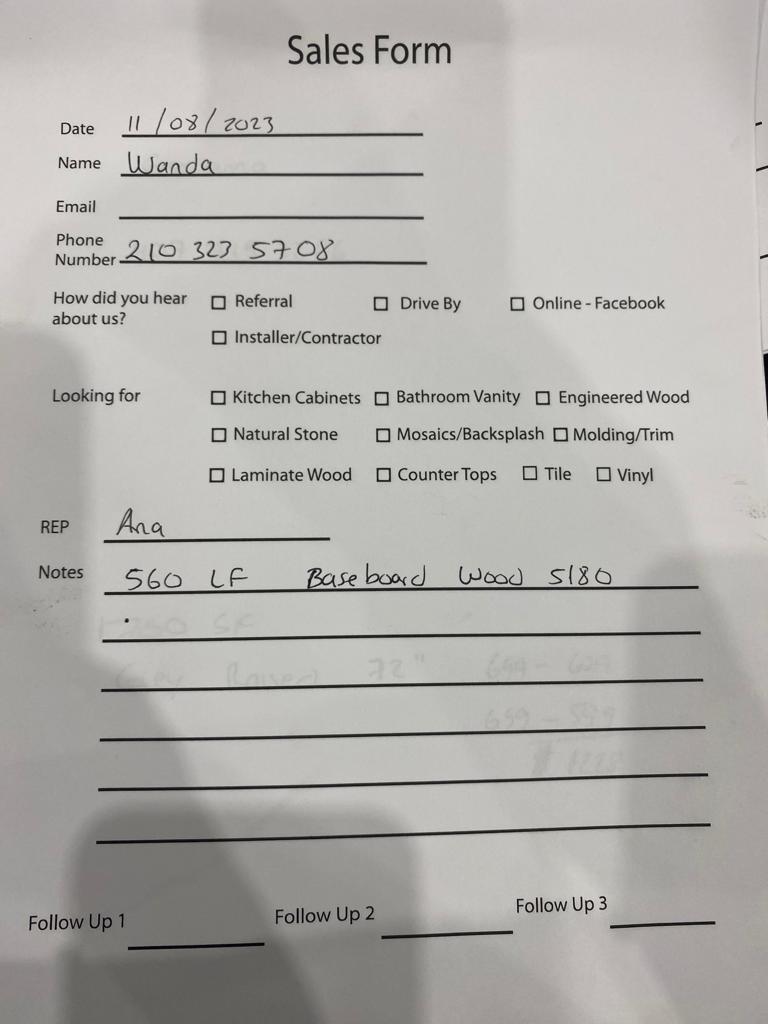 Sales Form
Date 11/08/2023
Name Wanda
Email
Phone
Number 210 323 5708
How did you hear about us? Referral Drive By Online - Facebook
Installer/Contractor
Looking for Kitchen Cabinets Bathroom Vanity Engineered Wood
Natural Stone Mosaics/Backsplash Molding/Trim
Laminate Wood Counter Tops Tile Vinyl
REP Ana
Notes 560 LF Baseboard Wood 5180
72"
Follow Up 1 Follow Up 2 Follow Up 3